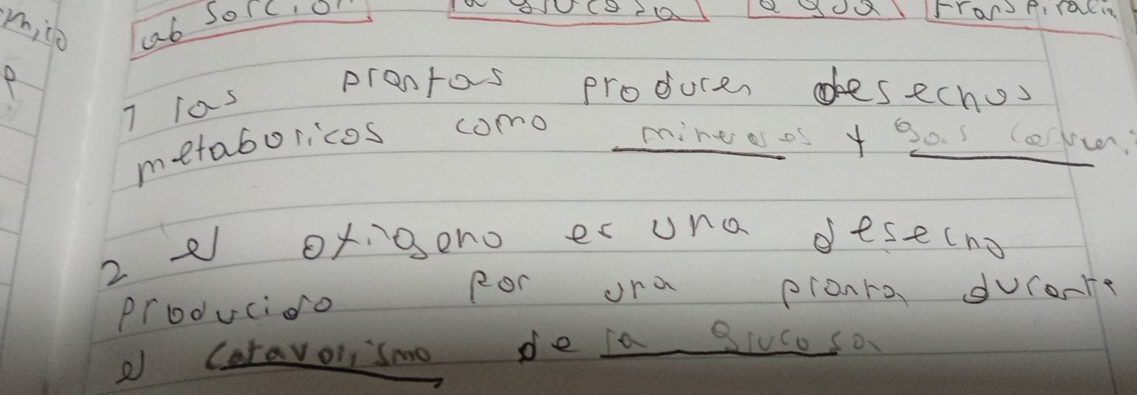 mico
absorción la glucosa agua transpiracin
p
1 las plantas producen desechos
metabolicos como minerales y gas
2 el oxigeno es una desecho
producido por una planta durante
el catavolismo de la glucosa